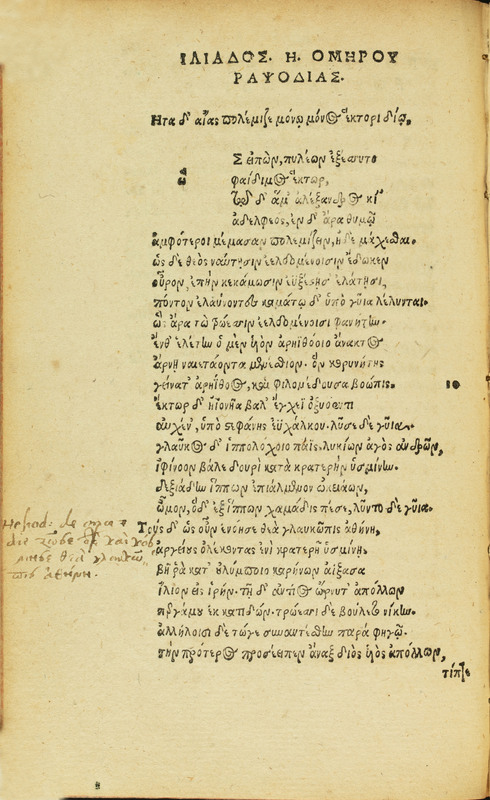 ΙΛΙΑΔΟΣ. Η. ΟΜΗΡΟΥ
ΡΑΨΟΔΙΑΣ.
Ητα δ' αἴας πολέμιζε μόνῳ μόνος ἕκτορι δίῳ.
Σ εἰπὼν, πυλέων ἐξέσσυτο
φαίδιμος ἕκτωρ,
τῷ δ' ἅμ' ἀλέξανδρος κί'
ἀδελφεός, ἐν δ' ἄρα θυμῷ
ἀμφότεροι μέμασαν πολεμίζειν, ἠδὲ μάχεσθαι.
ὡς δὲ θεὸς ναύτῃσιν ἐελδομένοισιν ἔδωκεν
οὖρον, ἐπὴν κεκάμωσιν ἐϋξέστῃς ἐλάτῃσι,
πόντον ἐλαύνοντες καμάτῳ δ' ὑπὸ γῦια λέλυνται.
ὣς ἄρα τὼ τρώεσσιν ἐελδομένοισι φανήτην.
ἔνθ' ἑλέτην ὁ μὲν ὑὸν ἀρηϊθόοιο ἄνακτος
ἄρνῃ ναιετάοντα μενέσθιον. ὃν κορυνήτης
γείνατ' ἀρηΐθοος, καὶ φιλομέδουσα βοῶπις.
10
ἕκτωρ δ' ἠϊονῆα βάλ' ἔγχεϊ ὀξυόεντι
αὐχέν', ὑπὸ στεφάνης ἐϋχάλκου. λῦσε δὲ γῦια.
γλαῦκος δ' ἱππολόχοιο πάϊς. λυκίων ἀγὸς ἀνδρῶν,
ἰφίνοον βάλε δουρὶ κατὰ κρατερὴν ὑσμίνην.
δεξιάδην ἵππων ἐπιάλμενον ὠκειάων,
ὦμον, ὁ δ' ἐξ ἵππων χαμάδις πέσε, λῦντο δὲ γῦια.
Τοὺς δ' ὡς οὖν ἐνόησε θεὰ γλαυκῶπις ἀθήνη,
ἀργείους ὀλέκοντας ἐνὶ κρατερῇ ὑσμίνῃ.
βῆ ῥὰ κατ' οὐλύμποιο καρήνων ἀΐξασα
ἴλιον εἰς ἱρήν. τῇ δ' ἀντίος ὤρνυτ' ἀπόλλων
περγάμου ἐκ κατιδών. τρώεσσι δὲ βούλετο νίκην.
ἀλλήλοισι δὲ τώγε συναντέσθην παρὰ φηγῷ.
τὴν πρότερος προσέειπεν ἄναξ διὸς ὑὸς ἀπόλλων,
τίπτε
θεὰ γλαυκῶ
πις ἀθήνη.